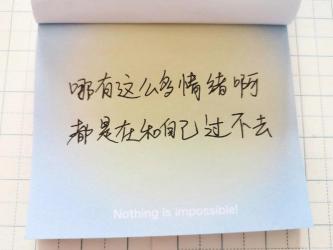 哪有这么多情绪啊
都是在和自己过不去
Nothing is impossible!